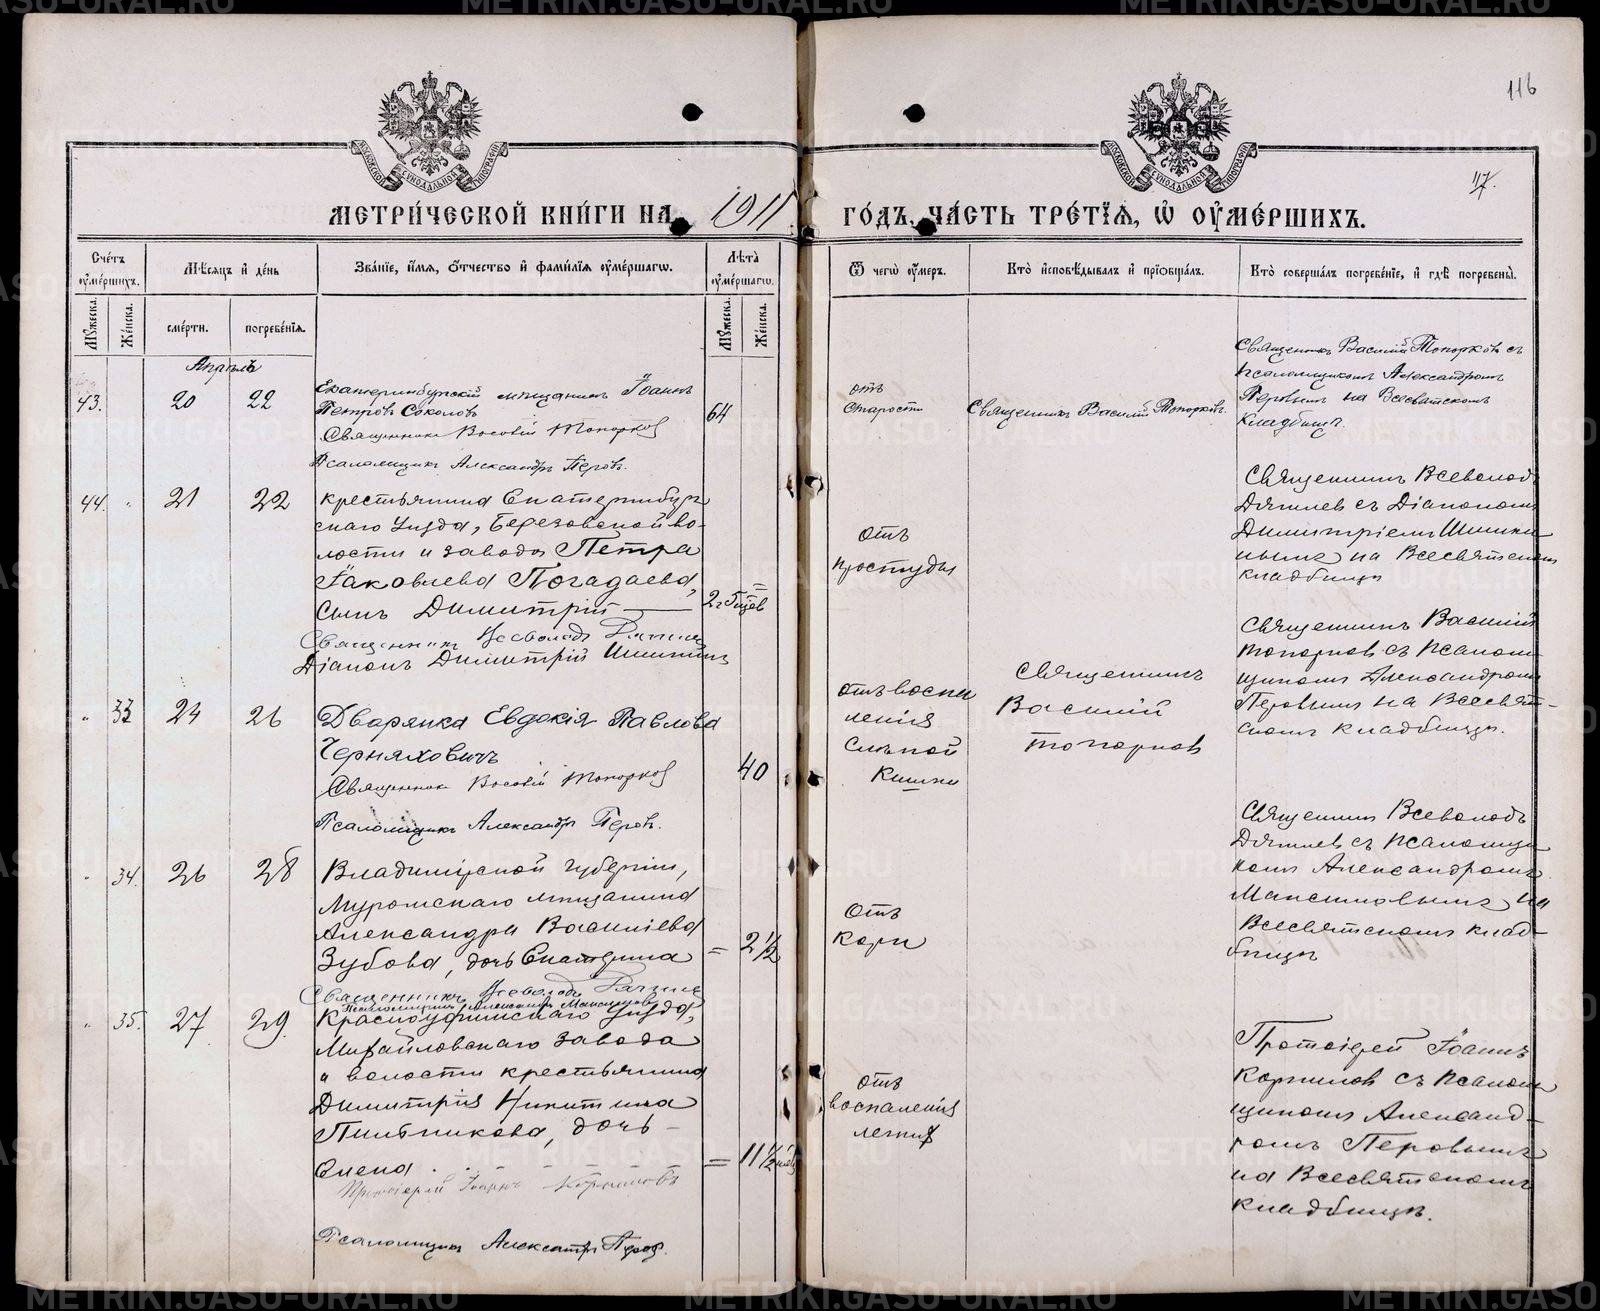 116
117.
МЕТРИ́ЧЕСКОЙ КНИ́ГИ НА 1911 ГО́ДЪ, ЧА́СТЬ ТРЕ́ТІѦ, Ѡ҆ ОУ҆МЕ́РШИХЪ.
Сче́тъ оу҆ме́ршихъ.
Мꙋ́жеска.
Же́нска.
Мѣ́сяцъ и҆ де́нь
сме́рти.
погребе́нїѧ.
Зва́нїе, и҆́мѧ, ѻ҆́тчество и҆ фами́лїѧ оу҆ме́ршагѡ.
Лѣ́та оу҆ме́ршагѡ.
Мꙋ́жеска.
Же́нска.
Ѿ чегѡ̀ оу҆́меръ.
Кто̀ и҆сповѣ́дывалъ и҆ прїѡбща́лъ.
Кто̀ соверша́лъ погребе́нїе, и҆ гдѣ̀ погребены̀.
Апрѣль
43.
20
22
Екатеринбургскій мѣщанинъ Іоаннъ
Петровъ Соколовъ
64
Священникъ Василій Топорковъ
Псаломщикъ Александръ Перовъ.
отъ
старости
Священникъ Василій Топорковъ.
Священникъ Василій Топорковъ съ
псаломщикомъ Александромъ
Перовымъ на Всесвятскомъ
кладбищѣ.
44.
"
21
22
крестьянина Екатеринбург
скаго Уѣзда, Березовской во-
лости и завода Петра
Іаковлева Погадаева,
сынъ Димитрій
2
Священникъ Всеволодъ
Діаконъ Димитрій Шишкинъ
отъ
простуды
Священникъ Всеволодъ
Дягилев съ Діакономъ
Димитріемъ Шишки
нымъ на Всесвятскомъ
кладбищѣ
"
33
24
26
Дворянка Евдокія Павлова
Черняховичъ
40
Священникъ Василій Топорковъ
Псаломщикъ Александръ Перовъ.
отъ воспа
ленія
слѣпой
кишки
Священникъ
Василій
Топорков
Священникъ Василій
Топорков съ псалом
щикомъ Александромъ
Перовымъ на Всесвят-
скомъ кладбищѣ.
"
34.
26
28
Владимірской губерніи,
Муромскаго мѣщанина
Александра Васильева
Зубова, дочь Екатерина
=
2½
Священникъ Всеволодъ
Псаломщикъ Александръ Максимовъ
Отъ
кори
Священникъ Всеволодъ
Дягилев съ псаломщи
комъ Александромъ
Максимовымъ на
Всесвятскомъ клад-
бищѣ
"
35.
27
29.
Красноуфимскаго Уѣзда,
Михайловскаго завода
и волости крестьянина
Димитрія Никитина
Пильникова, дочь
Елена
=
11½
Протоіерей Іоаннъ Корниловъ
Псаломщикъ Александръ Перовъ.
отъ
воспаленія
легких
Протоіерей Іоаннъ
Корнилов съ псалом
щикомъ Александ-
ромъ Перовымъ
на Всесвятскомъ
кладбищѣ.
METRIKI.GASO-URAL.RU